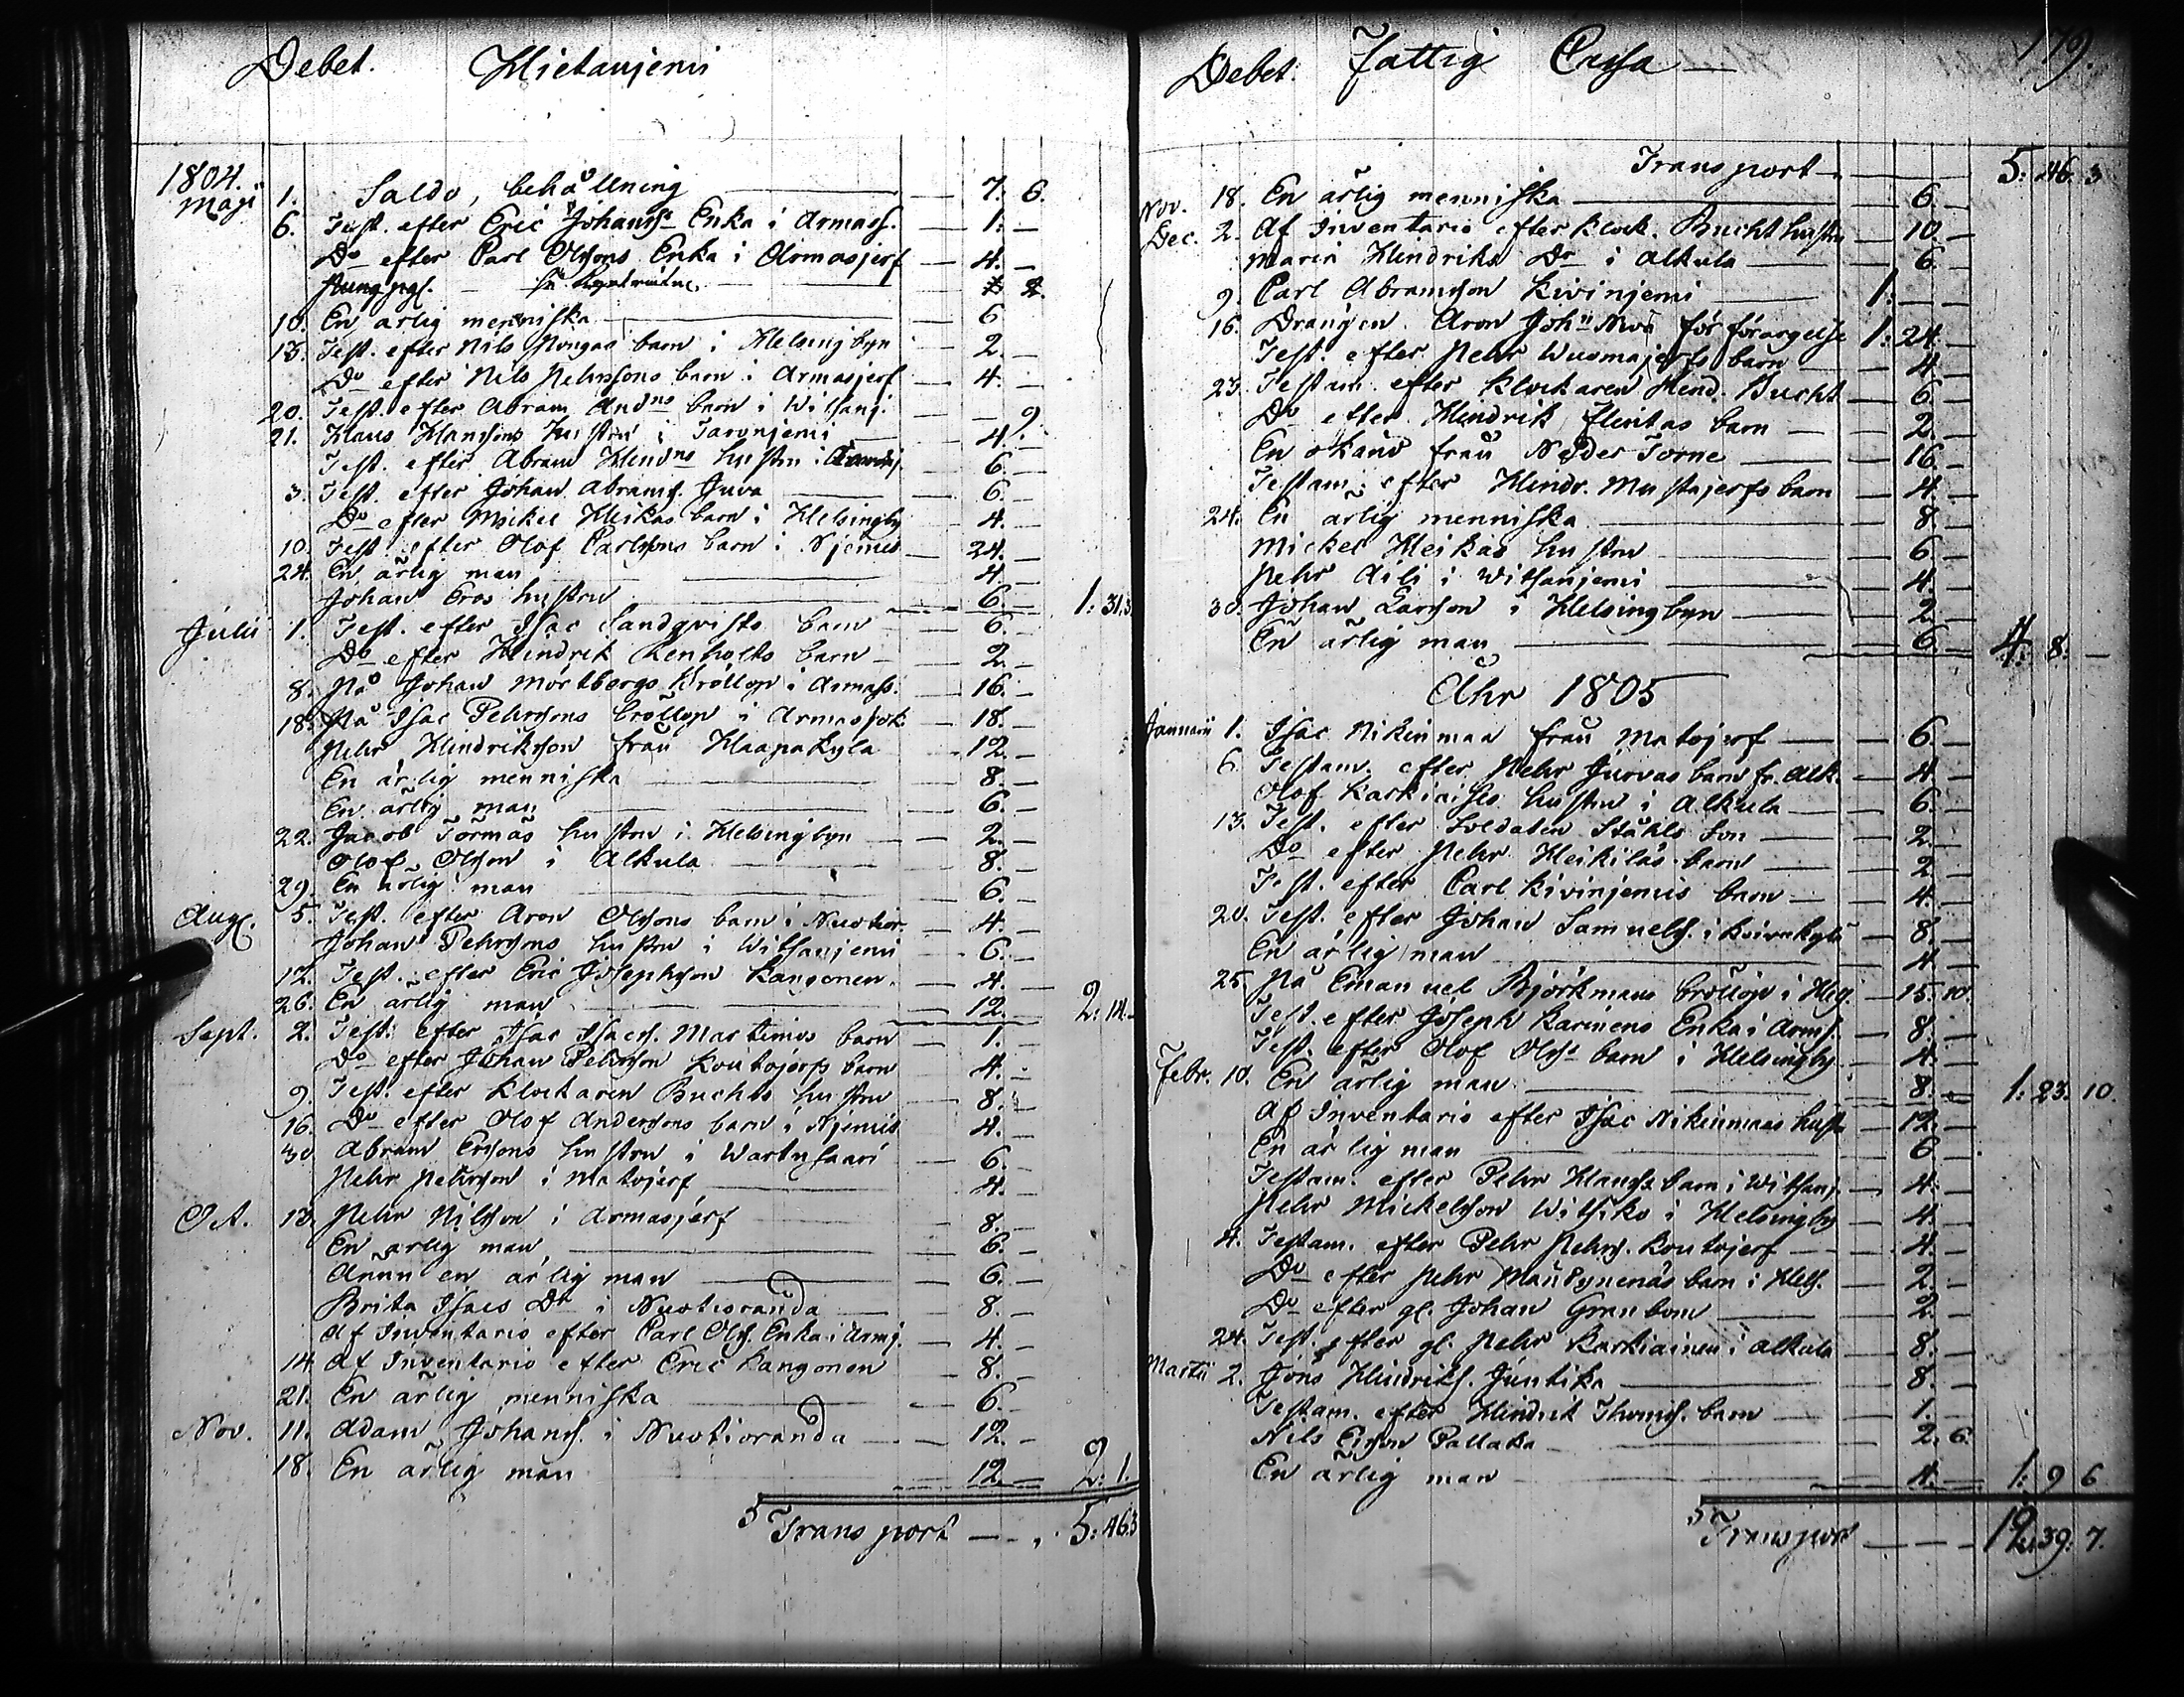 Debet. Hietaniemi
1804.
Maji 1. Saldo, behållning 7. 6.
6. Test. efter Eric Johanss. Enka i Armass. 1. —
Do efter Carl Olssons Enka i Armasjerf 4. —
10. En ärlig menniska 6
13. Test. efter Nils barn i Helsingbyn 2. —
Do efter Nils Pehrssons barn i Armasjerf 4. —
20. Test. efter Abram Andns barn i Witsanj. — 9.
21. Klaus Hanssons hustru i Taronjemi 4. —
Test. efter Abram Hindns hustru i 6. —
3. Test. efter Johan Abramss. Juva 6. —
Do efter Mickel Heikas barn i Helsingby 4. —
10. Test. efter Olof Carlssons barn i Njemis 24. —
24. En ärlig man 4 —
Johan Eros hustru 6. — 1: 31. 3
Julii 1. Test. efter Isac Sandqvists barn 6. —
Do efter Hindrik Renholts barn 2. —
8. På Johan Mörtbergs Bröllop i Armass. 16. —
18. På Isac Pehrssons bröllop i Armasjoki 18. —
Pehr Hindriksson från Haapakyla 12. —
En ärlig menniska 8. —
En ärlig man 6. —
22. Jacob Törmäs hustru i Helsingbyn 2. —
Olof Olsson i Alkula 8. —
29. En ärlig man 6. —
Aug. 5. Test. efter Aron Olssons barn i Nuotior. 4. —
Johan Pehrssons hustru i Witsanjemi 6. —
12. Test. efter Eric Josephsson Kangonen. 4. —
26. En ärlig man 12. — 2: 14. —
Sept. 2. Test. efter Isac Isacss. Martimos barn 1. —
Do efter Johan Pehrsson Koutojerfs barn 4. —
9. Test. efter Klockaren Buchts hustru 8. —
16. Do efter Olof Anderssons barn i Njemis 4. —
30 Abram Erssons hustru i Wartusaari 6. —
Pehr Pehrsson i Matojerf 4. —
Oct. 13. Pehr Nilsson i Armasjerf 8. —
En ärlig man 6. —
Ännu en ärlig man 6. —
Brita Isacs Dr i Nuotioranda 8. —
Af Inventario efter Carl Olss. Enka i Armj. 4. —
14 Af Inventario efter Eric Kangonen 8. —
21. En ärlig menniska 6. —
Nov. 11. Adam Johanss. i Nuotioranda 12. —
18. En ärlig man 12. — 2: 1.
Transport — 5: 46. 3
Debet. Fattig Cassa — 179.
Transport 5: 46. 3
Nov. 18. En ärlig menniska 6. —
Dec. 2. Af Inventario efter Klock. Bucht hustru 10. —
Maria Hindriks Dr i Alkula 6. —
9. Carl Abramsson Kivinjemi 1: — —
16. Drängen Aron Johns för förargelse 1: 24. —
Test. efter Pehr Wuomajerfs barn 4 —
23. Testam. efter Klockaren Hend. Bucht 6. —
Do efter Hindrik barn 2. —
En okänd från Neder Torne 16. —
Testam. efter Hindr. Mustajerfs barn 4. —
24. En ärlig menniska 8. —
Mickel Heikas hustru 6. —
Pehr Aili i Witsanjemi 4. —
30. Johan Larsson i Helsingbyn 2. —
En ärlig man 6. — 4: 8. —
Åhr 1805
Januarii 1. Isac Nikinmaa från Matojerf 6. —
6 Testam. efter Pehr Juovas barn fr. Alk. 4 —
Olof Karkiaises hustru i Alkula 6. —
13. Test. efter Soldaten Ståhls son 2. —
Do efter Pehr Heikiläs barn 2. —
Test. efter Carl Kivinjemis barn 4. —
20. Test. efter Johan Samuelss. i Koivukylä 8. —
En ärlig man 4. —
25. På Emanuel Björkmans bröllop i 15. 10.
Test. efter Joseph Karinens Enka i Armj. 8. —
Test. efter Olof Olss. barn i Helsingby. 4. —
Febr. 10. En ärlig man 8. — 1: 23. 10.
Af Inventario efter Isac Nikinmaas hustru 12. —
En ärlig man 6 —
Testam. efter Pehr Hanss. barn i Witsanj. 4. —
Pehr Mickelsson Witsiko i Helsingby 4. —
4. Testam. efter Pehr Pehrss. Koutojerf 4. —
Do efter Pehr barn i Hels. 2. —
Do efter gl. Johan Granbom 2 —
24. Test. efter gl. Pehr Karkiainen i Alkula 8. —
Martii 2. Jöns Hindrikss. Juntika 8. —
Testam. efter Hindrik Thomss. barn 1. —
Nils Ersson Pallaka 2. 6.
En ärlig man 4. — 1: 9 6
Transport — 12. 39: 7.